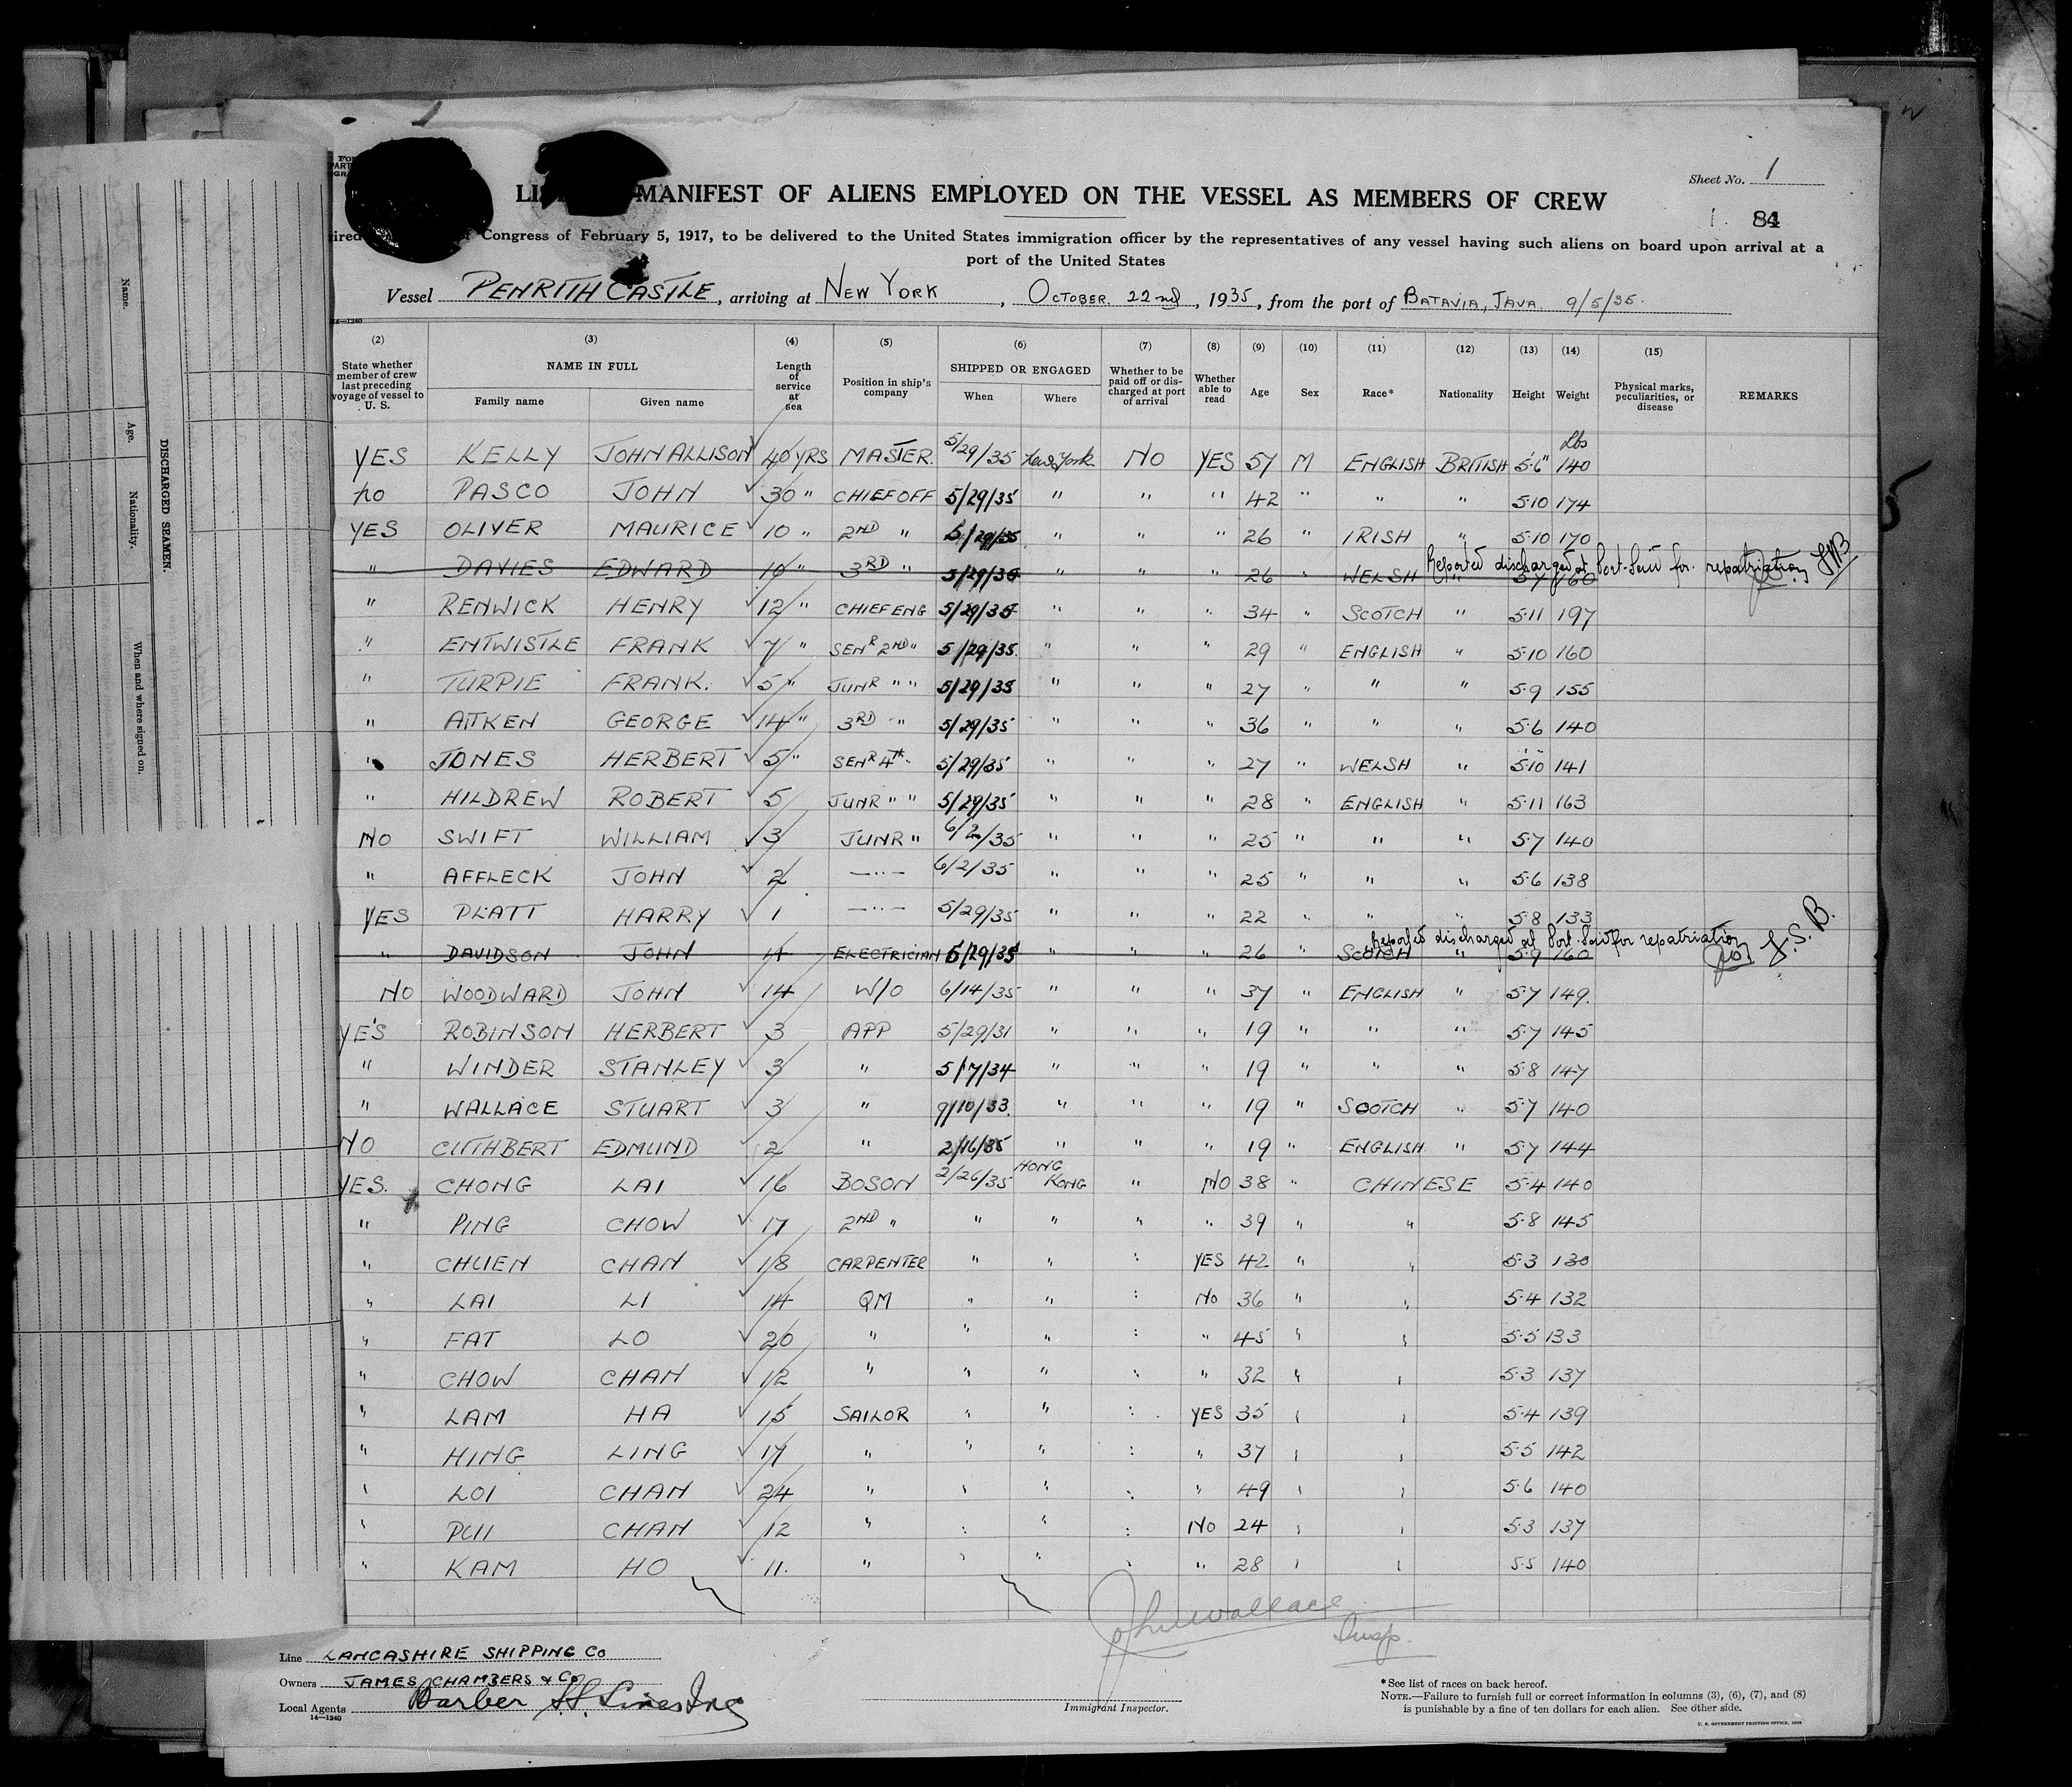 Sheet No. 1
MANIFEST OF ALIENS EMPLOYED ON THE VESSEL AS MEMBERS OF CREW
84
Congress of February 5, 1917, to be delivered to the United States immigration officer by the representatives of any vessel having such aliens on board upon arrival at a
port of the United States
Vessel PENRITH CASTLE, arriving at NEW YORK, OCTOBER. 22nd, 1935, from the port of BATAVIA, JAVA. 9/5/35.
(2) (3) (4) (5) (6) (7) (8) (9) (10) (11) (12) (13) (14) (15)
State whether member of crew last preceding voyage of vessel to U. S. NAME IN FULL Family name Given name Length of service at sea Position in ship's company SHIPPED OR ENGAGED When Where Whether to be paid off or discharged at port of arrival Whether able to read Age Sex Race* Nationality Height Weight Physical marks, peculiarities, or disease REMARKS
Lbs
YES KELLY JOHN ALLISON 40 YRS MASTER. 5/29/35 New York. NO YES 57 M ENGLISH BRITISH 5'6" 140
NO PASCO JOHN 30 " CHIEF OFF 5/29/35 " " " 42 " " " 5·10 174
YES OLIVER MAURICE 10 " 2ND " 5/29/35 " " " 26 " IRISH " 5·10 170
Reported discharged at Port Said for repatriation
" DAVIES EDWARD 10 " 3RD " 5/29/35 " " " 26 " WELSH " 5·7 160
" RENWICK HENRY 12 " CHIEF ENG 5/29/35 " " " 34 " SCOTCH " 5·11 197
" ENTWISTLE FRANK 7 " SENR 2ND " 5/29/35 " " " 29 " ENGLISH " 5·10 160
" TURPIE FRANK. 5 " JUNR " " 5/29/35 " " " 27 " " " 5·9 155
" AITKEN GEORGE 14 " 3RD " 5/29/35 " " " 36 " " " 5·6 140
" JONES HERBERT 5 " SENR 4TH " 5/29/35 " " " 27 " WELSH " 5·10 141
" HILDREW ROBERT 5 JUNR " " 5/29/35 " " " 28 " ENGLISH " 5·11 163
NO SWIFT WILLIAM 3 JUNR " 6/2/35 " " " 25 " " " 5·7 140
" AFFLECK JOHN 2 —"— 6/2/35 " " " 25 " " " 5·6 138
YES PLATT HARRY 1 —"— 5/29/35 " " " 22 " " " 5·8 133
Reported discharged at Port Said for repatriation J.S.B.
" DAVIDSON JOHN 4 ELECTRICIAN 5/29/35 " " " 26 " SCOTCH " 5·9 160
NO WOODWARD JOHN 14 W/O 6/14/35 " " " 37 " ENGLISH " 5·7 149.
YES ROBINSON HERBERT 3 APP 5/29/31 " " " 19 " " " 5·7 145
" WINDER STANLEY 3 " 5/17/34 " " " 19 " " " 5·8 147
" WALLACE STUART 3 " 9/10/33. " " " 19 " SCOTCH " 5·7 140
NO CUTHBERT EDMUND 2 " 2/16/35 " " " 19 " ENGLISH " 5·7 144
YES. CHONG LAI 16 BOSON 2/26/35 HONG KONG " NO 38 " CHINESE 5·4 140
" PING CHOW 17 2ND " " " " " 39 " " 5·8 145
" CHUEN CHAN 18 CARPENTER " " " YES 42 " " 5·3 130
" LAI LI 14 QM " " " NO 36 " " 5·4 132
" FAT LO 20 " " " " " 45 " " 5·5 133
" CHOW CHAN 12 " " " " " 32 " " 5·3 137
" LAM HA 15 SAILOR " " " YES 35 " " 5·4 139
" HING LING 17 " " " " " 37 " " 5·5 142
" LOI CHAN 24 " " " " " 49 " " 5·6 140
" PUI CHAN 12 " " " " NO 24 " " 5·3 137
" KAM HO 11. " " " " " 28 " " 5·5 140
John Wallace
Insp.
Line LANCASHIRE SHIPPING Co
Owners JAMES CHAMBERS & Co
Local Agents Barber S.S. Lines Inc
14—1240
Immigrant Inspector.
*See list of races on back hereof.
NOTE.—Failure to furnish full or correct information in columns (3), (6), (7), and (8)
is punishable by a fine of ten dollars for each alien. See other side.
Name.
Age.
Nationality.
When and where signed on.
DISCHARGED SEAMEN.